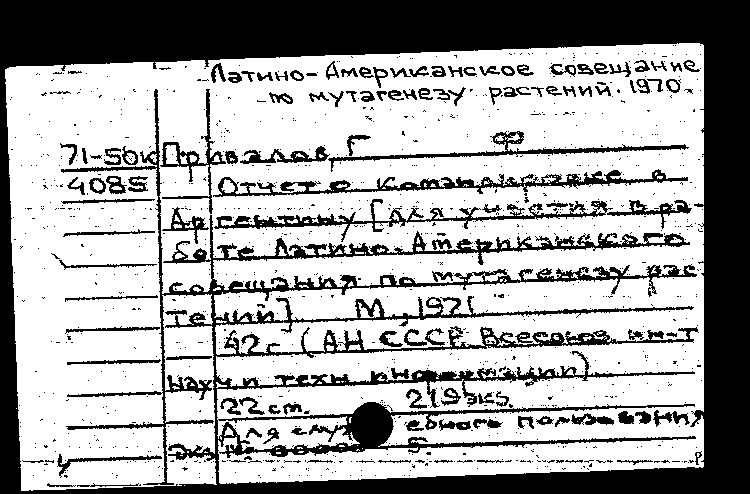 Латино-Американское совещание
по мутагенезу растений. 1970.
71-50к Привалов, Г Ф
4085 Отчет о командировке в
Аргентину [для участия в ра-
боте Латино-Американского
совещания по мутагенезу рас-
тений]. М., 1971
42с. (АН СССР. Всесоюз. ин-т
науч. и техн. информации)
22 ст. 219 экз.
Для служебного пользования
Экз № 00000 5.